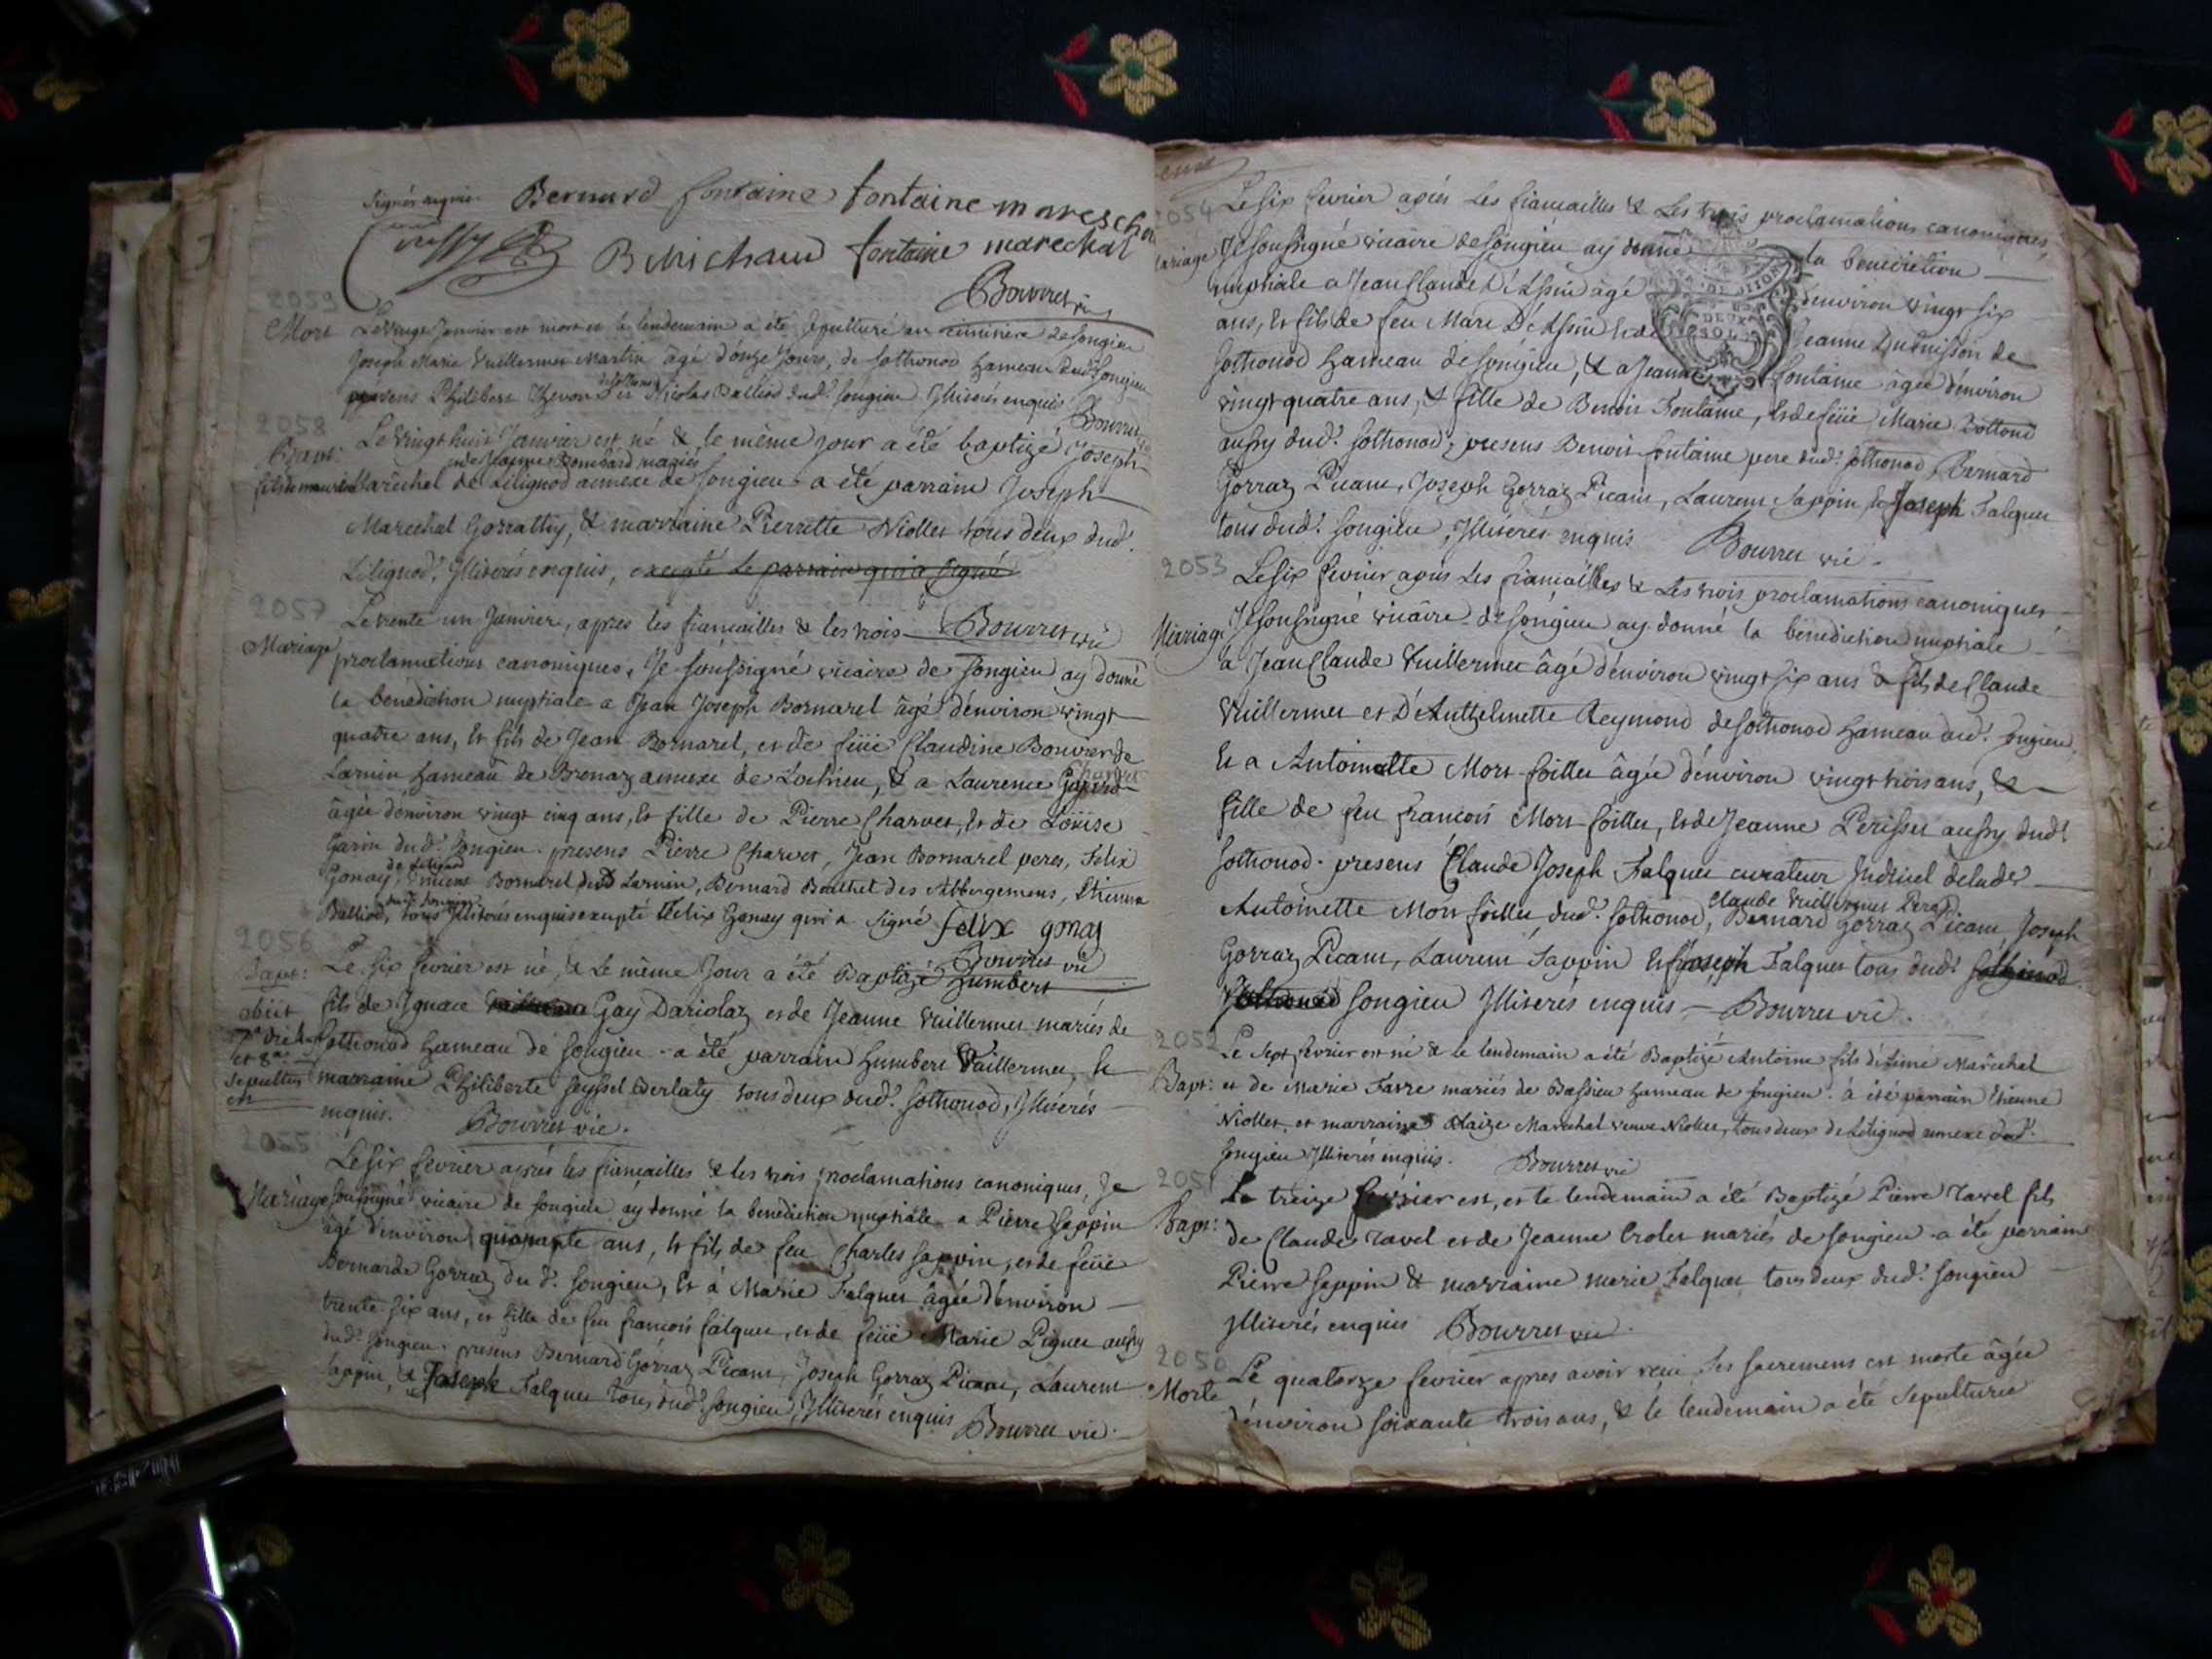 Signés requis. Bernard fontaine fontaine mareschal
Bmichaud fontaine marechal
Bourret vic
2059
Mort Le vingt Janvier est mort et le lendemain a été sepulturé au cimmitiere de songieu
Joseph Marie Vuillermet Martin âgé d'onze Jours, de sothonod hameau dud. songieu
presens Philibert Thevenod de sothonod et Nicolas Balliod dud. songieu Illiterés enquis
Bourret vic
2058
Bapt: Le vingt huit Janvier est né & le même jour a été baptizé Joseph
fils de maurice Marêchal et de Jeanne Bombard mariés de Lilignod annexe de songieu a été parrain Joseph
Marechal Gorrathy, & marraine Pierrette Niollet tous deux dud.
Lilignod, Illiterés enquis, excepté le parrain qui a signé
Bourret vic
2057
Mariage Le trente un Janvier, apres les fiancailles & les trois
proclamations canoniques, Je soussigné vicaire de songieu ay donné
la benediction nuptiale a Jean Joseph Bornarel âgé d'environ vingt
quatre ans, & fils de Jean Bornarel, et de feüe Claudine Bouvier de
Larnin hameau de Brenaz annexe de Lochieu, & a Laurence Charvet
âgée d'environ vingt cinq ans, & fille de Pierre Charvet, & de Loüise
Garin dud. songieu. presens Pierre Charvet, Jean Bornarel peres, Felix
Gonay de Lilignod, Bornarel dud Larnin, Bernard Berthet des Abbergemens, Etienne
Balliod, dud. songieu tous Illiterés enquis excepté Felix Gonay qui a signé felix gonay
Bourret vic
2056
Bapt: Le six fevrier est né, & le même Jour a été Baptizé Humbert
obiit fils de Ignace Gay Dariolaz et de Jeanne Vuillermet mariés de
sothonod hameau de songieu. a été parrain humbert Vuillermet, &
sepultus marraine Philiberte seyssel tous deux dud. sothonod, Illiterés
est enquis. Bourret vic.
2055
Le six fevrier aprés les fiancailles & les trois proclamations canoniques, Je
Mariage soussigné vicaire de songieu ay donné la benediction nuptiale a Pierre sappin
âgé d'environ quarante ans, & fils de feu Charles sappin, et de feüe
Bernarde Gorraz du d. songieu, & à Marie Falquet âgée d'environ
trente six ans, et fille de feu francois falquet, et de feüe Marie Piguet aussy
dud. songieu. presens Bernard Gorraz Picant, Joseph Gorraz Picant, Laurent
sappin, & Joseph Falquet tous dud. songieu, Illiterés enquis Bourret vic.
2054
Le six fevrier aprés les fiancailles & les trois proclamations canoniques,
Mariage Je soussigné vicaire de songieu ay donné la benediction
nuptiale a Jean Claude D'Assin âgé d'environ vingt six
ans, & fils de feu Marc D'Assin & de Jeanne Dubuisson de
sothonod hameau de songieu, & a Jeanne fontaine âgée d'environ
vingt quatre ans, & fille de Benoit Fontaine, & de feüe Marie Bottond
aussy dud. sothonod, presens Benoit fontaine pere dud. sothonod, Bernard
Gorraz Picant, Joseph Gorraz Picant, Laurent sappin, & Joseph Falquet
tous dud. songieu, Illiterés enquis Bourret vic.
2053
Le six fevrier aprés les fiancailles & les trois proclamations canoniques,
Mariage Je soussigné vicaire de songieu ay donné la benediction nuptiale
a Jean Claude Vuillermet âgé d'environ vingt six ans & fils de Claude
Vuillermet et D'Anthelmette Reymond de sothonod hameau dud. songieu
& a Antoinette Mort foillet âgée d'environ vingt trois ans, &
fille de feu francois Mort foillet, & de Jeanne Perisset aussy dud.
sothonod. presens Claude Joseph Falquet curateur Judiciel de lade
Antoinette Mort foillet, dud. sothonod, Claude Vuillermet Pere, Bernard Gorraz Picant, Joseph
Gorraz Picant, Laurent Sappin & Joseph Falquet tous dud. sothonod
sothonod songieu Illiterés enquis Bourret vic.
2052
Le sept fevrier est né & le lendemain a été Baptizé Antoine fils d'Aimé Marêchal
Bapt: et de Marie Favre mariés de Bassieu hameau de songieu. à été parrain Etienne
Niollet, et marraine Claize Marechal veuve Niollet, tous deux de Lilignod annexe dud.
songieu Illiterés enquis. Bourret vic
2051
Le treize fevrier est, et le lendemain a été Baptizé Pierre Tavel fils
Bapt: de Claude Tavel et de Jeanne Crolet mariés de songieu. a été parrain
Pierre sappin & marraine marie Falquet tous deux dud. songieu
Illiterés enquis Bourret vic.
2050
Le quatorze fevrier apres avoir recu les sacremens est morte âgée
Morte d'environ soixante trois ans, & le lendemain a été sepulturée